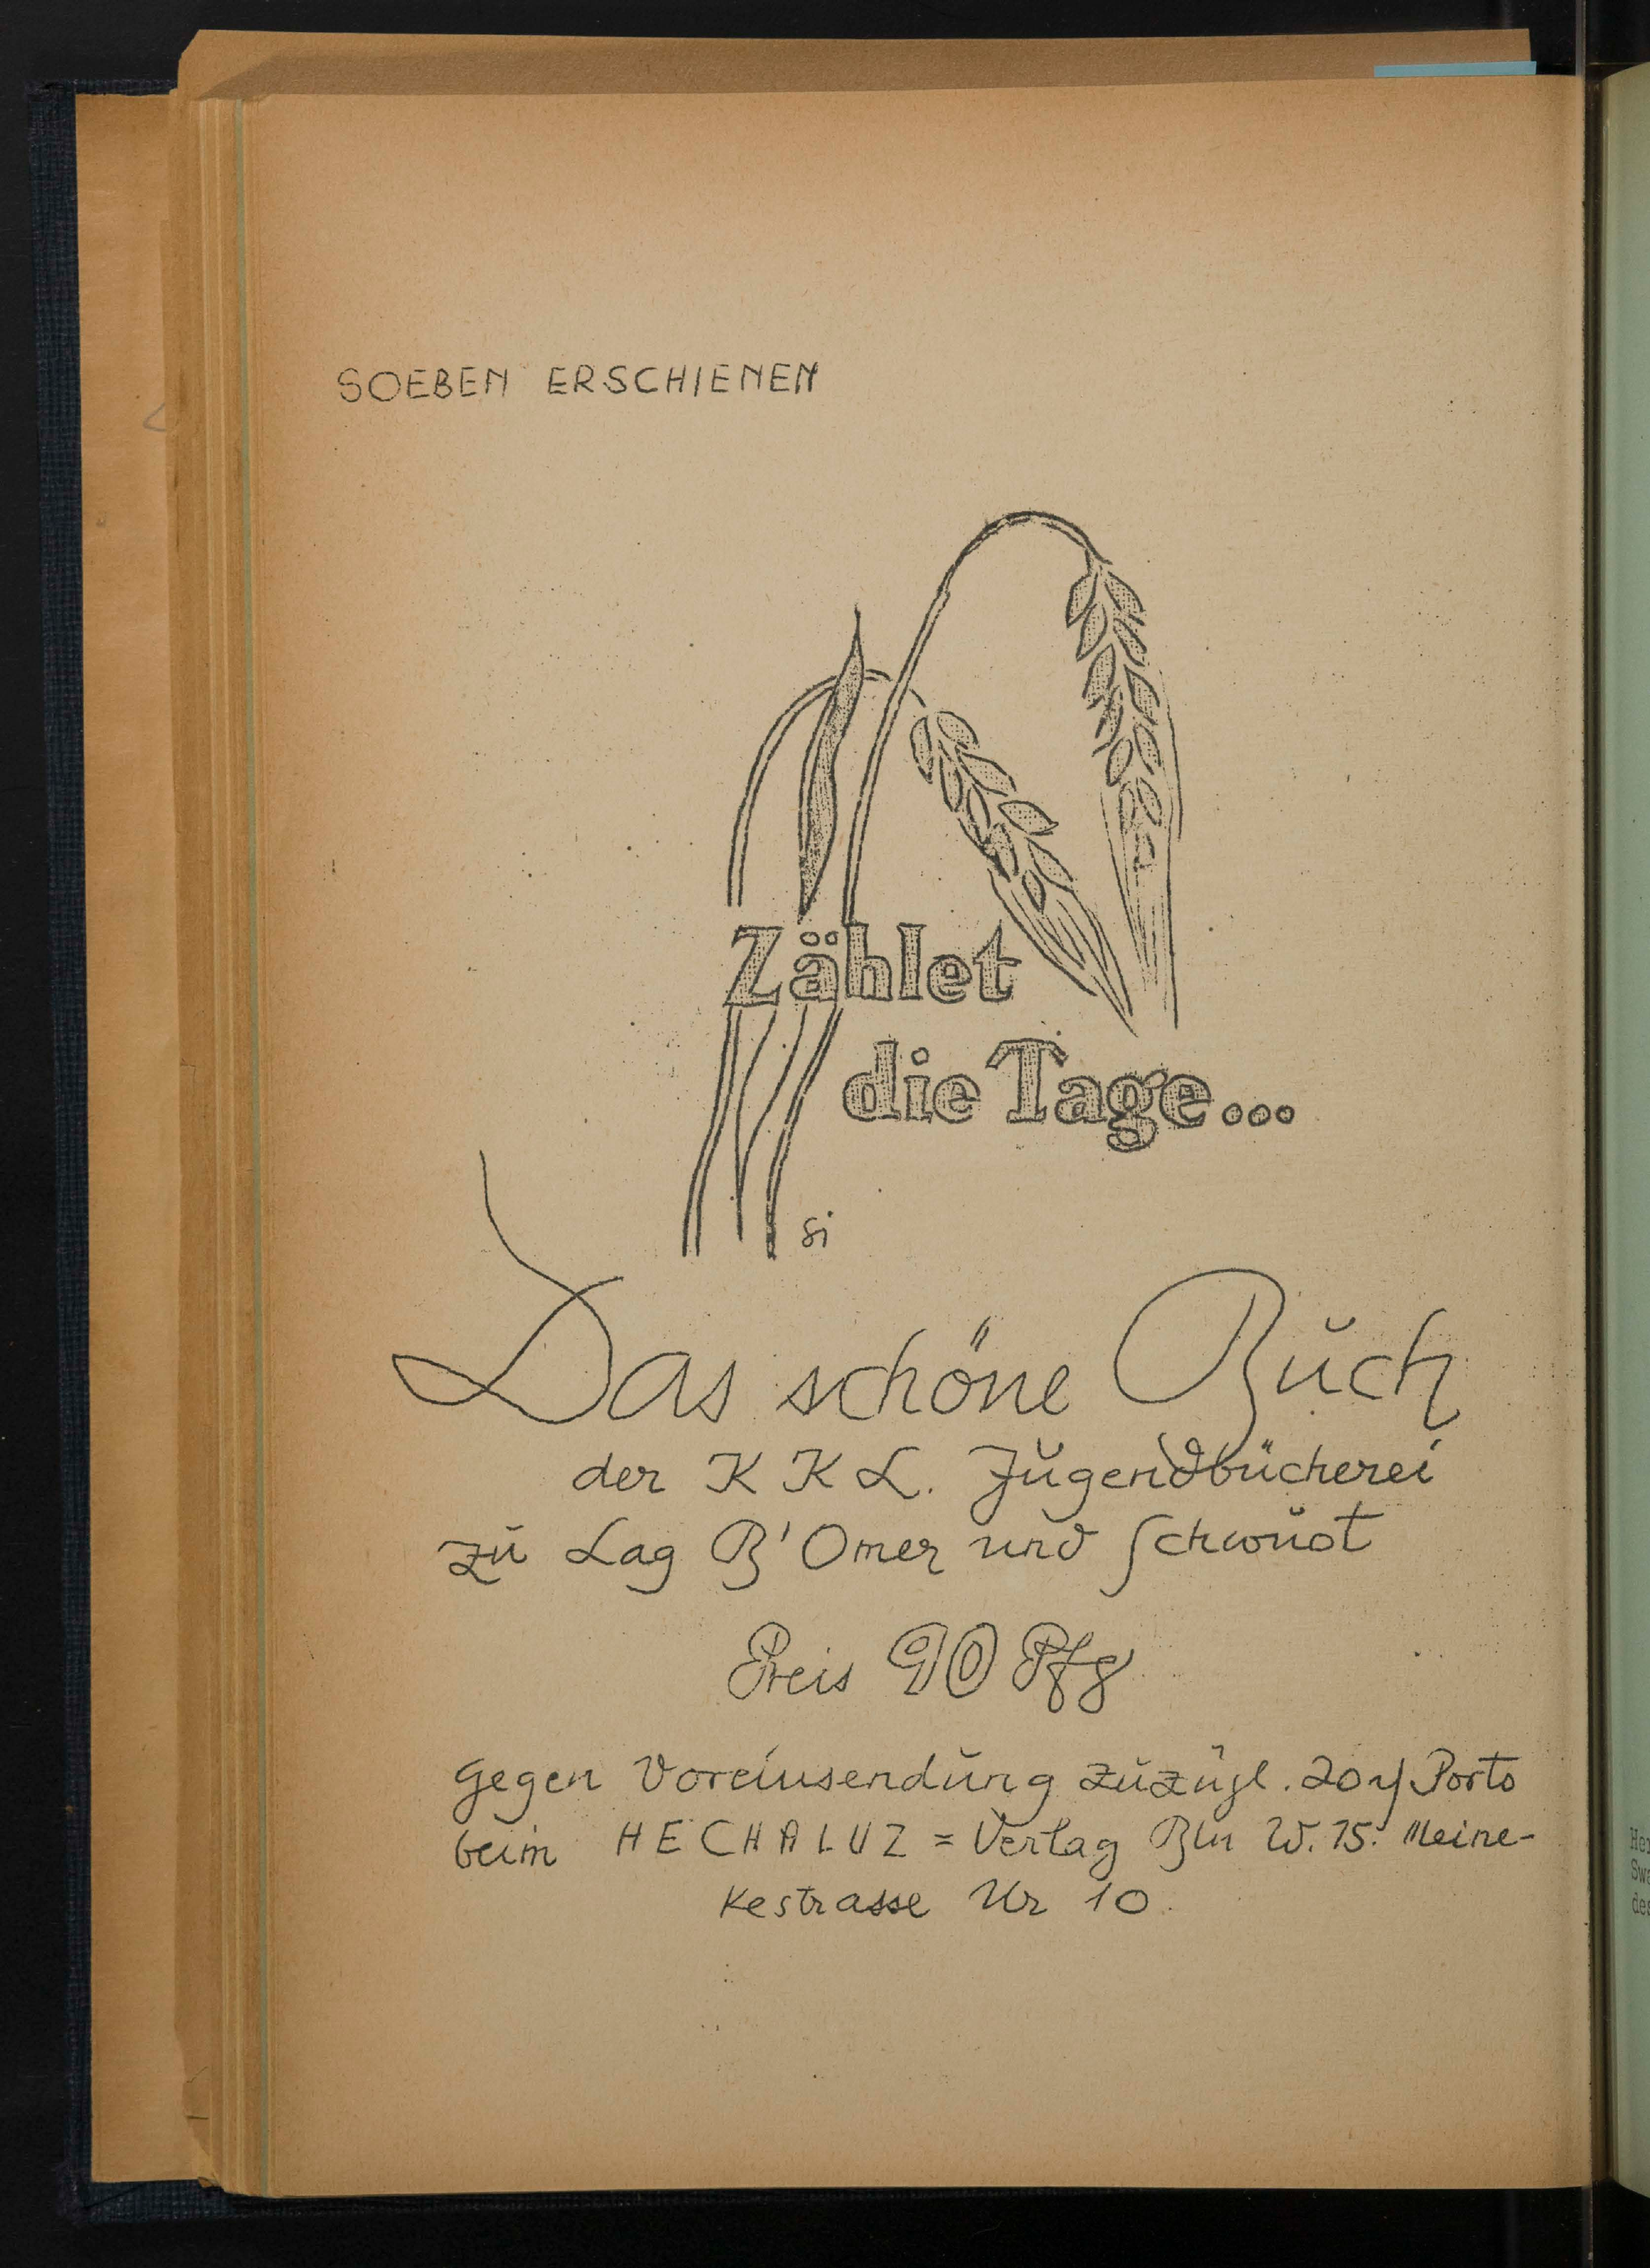 SOEBEN ERSCHIENEN
Zählet
die Tage...
si
Das schöne Buch
der K K L. Jugendbücherei
zu Lag B'Omer und Schwuot
Preis 90 Pfg
gegen Voreinsendung zuzügl. 20 ₰ Porto
beim HECHALUZ = Verlag Bln W. 15. Meine-
kestrasse Nr 10.